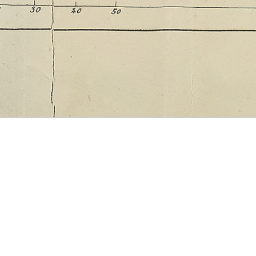 30 40 50